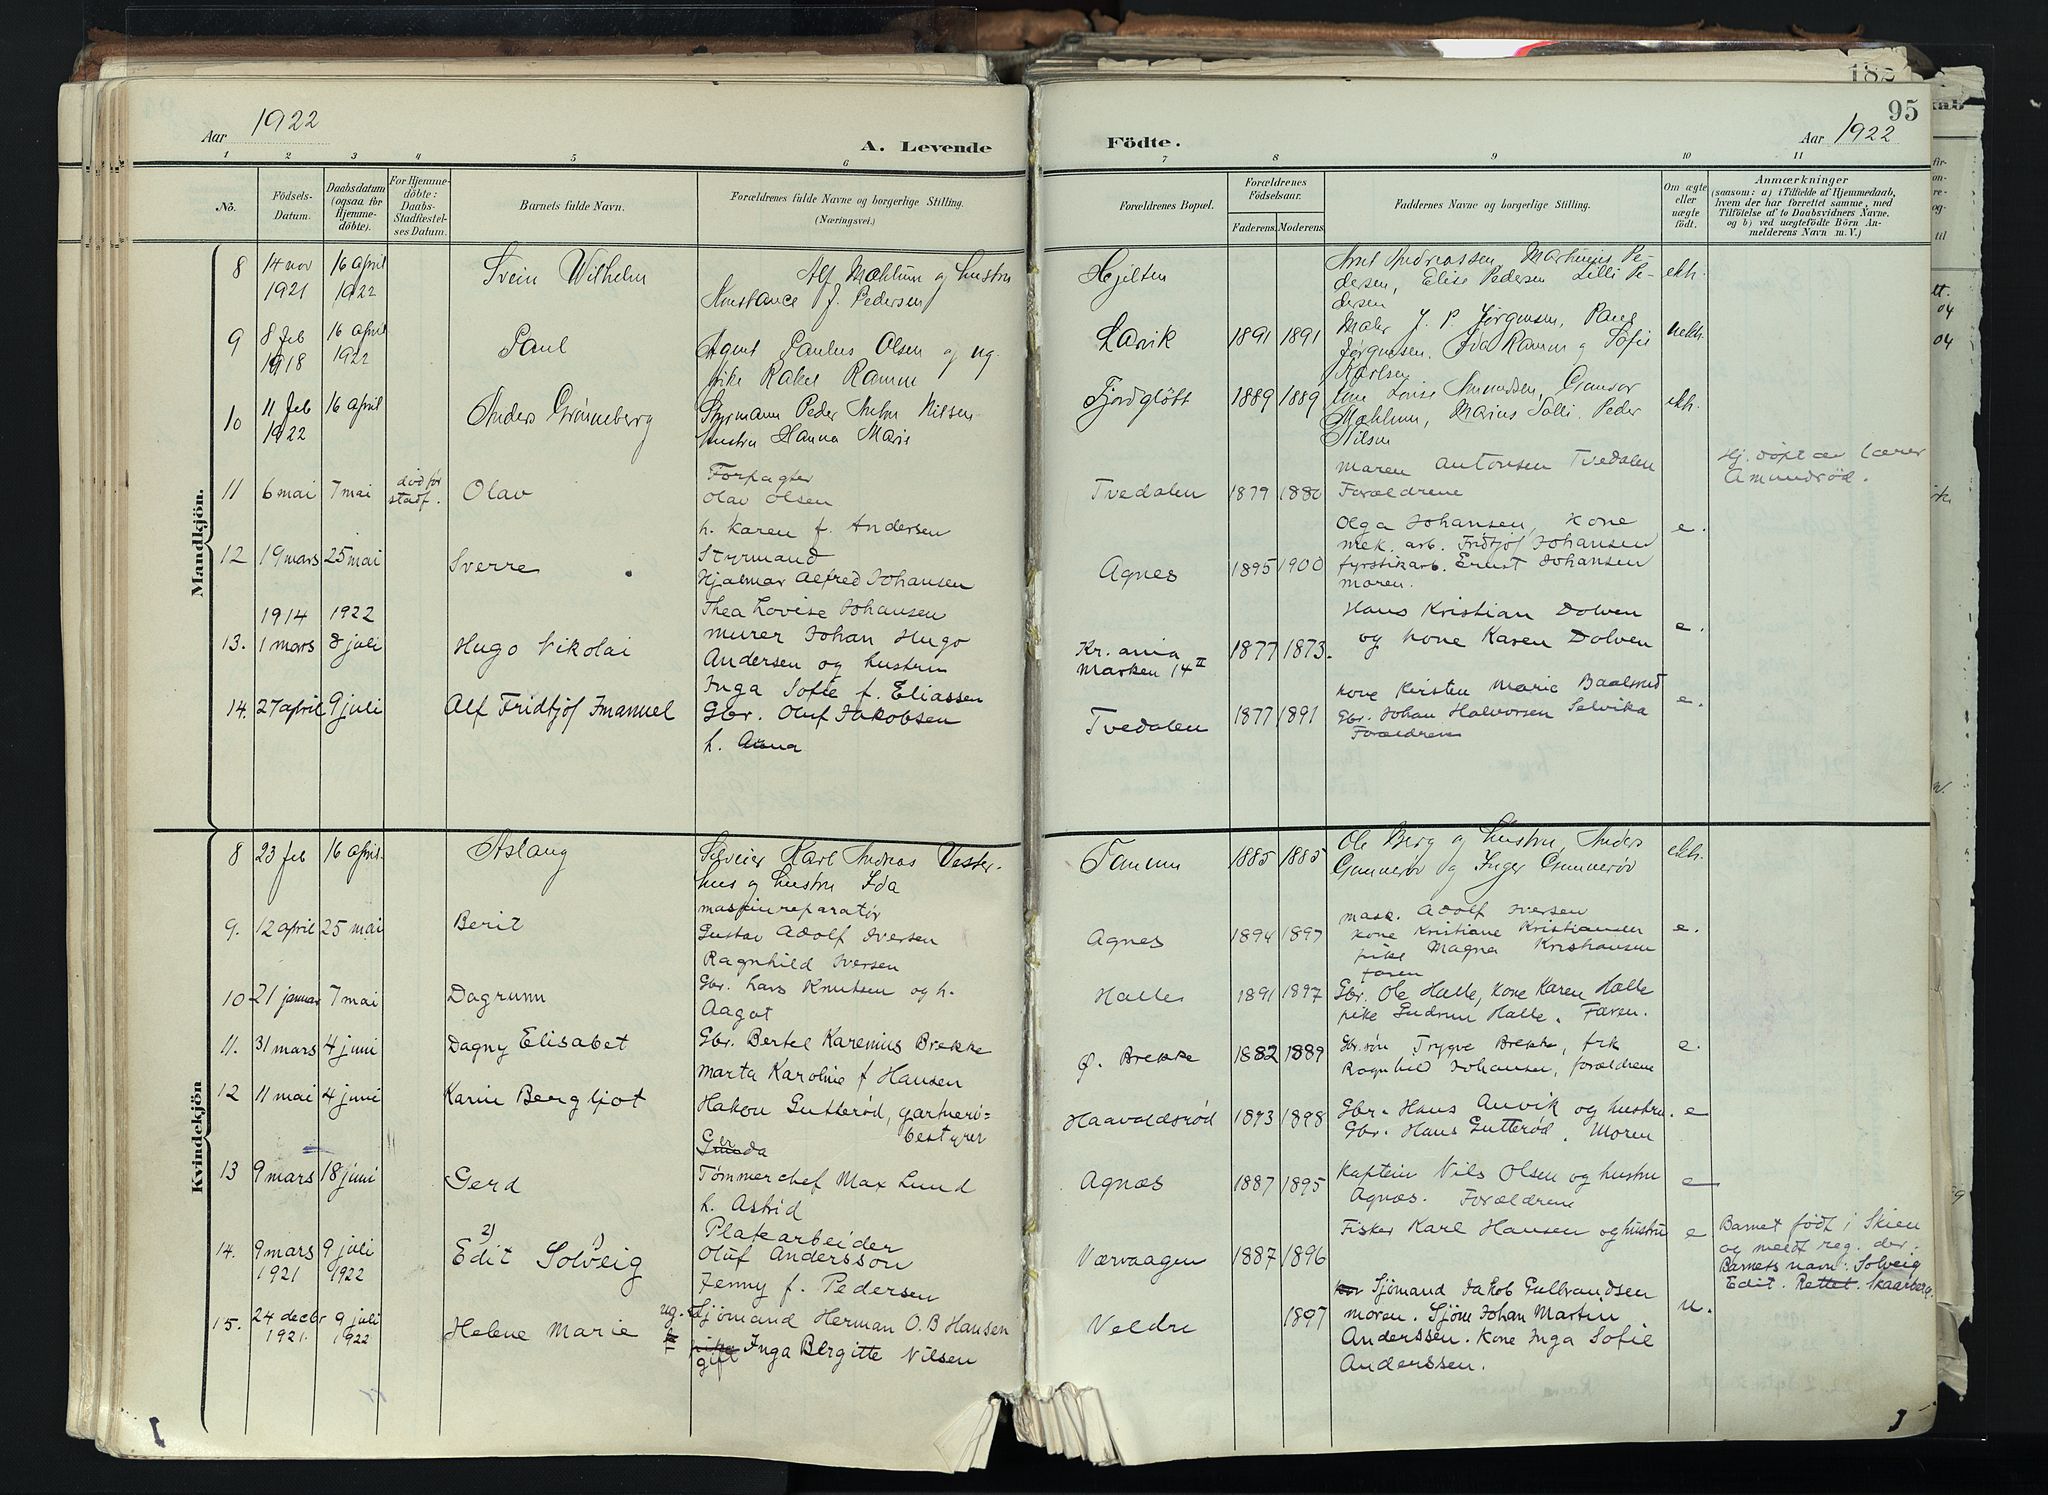 Aar 1922
A. Levende
1 2 3 4 5 6
No.
Födsels-
Datum.
Daabsdatum
(ogsaa for
Hjemme-
döbte).
For Hjemme-
döbte:
Daabs-
Stadfæstel-
ses Datum.
Barnets fulde Navn.
Forældrenes fulde Navne og borgerlige Stilling.
(Næringsvei.)
Mandkjön.
8 14 nov 16 april Svein Wilhelm Alf Mæhlum og hustru
1921 1922 Konstance f. Pedersen
9 8 feb 16 april Paul Agent Paulus Olsen og ug.
1918 1922 pike Rakel Ramm
10 11 feb 16 april Anders Grønneberg Styrmann Peder Anton Nilsen
1922 hustru Hanna Marie
11 6 mai 7 mai død før Olav Forpagter
stadf. Olav Olsen
h. Karen f. Andersen
12 19 mars 25 mai Sverre Styrmand
Hjalmar Alfred Johansen
1914 1922 Thea Lovise Johansen
13. 1 mars 8 juli Hugo Nikolai murer Johan Hugo
Andersen og hustru
Inga Sofie f. Eliassen
14. 27 april 9 juli Alf Fridtjof Imanuel Gbr. Oluf Jakobsen
h. Anna
Kvindekjön
8 23 feb 16 april. Aslaug Karl Andreas Vester-
hus og hustru Ida
9. 12 april 25 mai Berit maskinreparatør
Gustav Adolf Iversen
Ragnhild Iversen
10 21 januar 7 mai Dagrunn Gbr. Lars Knutsen og h.
Aagot
11. 31 mars 4 juni Dagny Elisabet Gbr. Bertel Karenius Brekke
Marta Karoline f Hansen
12 11 mai 4 juni Karin Bergljot Hakon Gutterød, gartneri=
bestyrer
13 9 mars 18 juni Gerd Tømmerchef Max Lund
h. Astrid
14. 9 mars 9 juli 2) Edit 1) Solveig Platearbeider
1921 1922 Oluf Andersson
Jenny f. Pedersen
15. 24 decbr 9 juli Helene Marie ug. Sjømand Herman O. B Hansen
1921. 1922 pike Inga Bergitte Nilsen
gift
182
95
Födte.
Aar 1922
7 8 9 10 11
Forældrenes Bopæl.
Forældrenes
Födselsaar.
Faderens. Moderens.
Faddernes Navne og borgerlige Stilling.
Om ægte
eller
uægte
födt.
Anmærkninger
(saasom: a) i Tilfælde af Hjemmedaab,
hvem der har forrettet samme, med
Tilföielse af to Daabsvidners Navne,
og b) ved uægtefödte Börn An-
melderens Navn m. V.)
Hjelten Arnt Andreassen Martinius Pe-
dersen, Elise Pedersen Lilli Pe- ekh.
dersen
Larvik 1891 1891 J. P. Jørgensen, Paul uekh.
Jørgensen. Ida Ramm og Sofie
Karlsen
Fjordgløtt 1889 1889 Lovise Amundsen, Gunvor ekh.
Mæhlum, Marius Solli. Peder
Nilsen
Tvedalen 1879 1880 Maren Antonsen Tvedalen
Forældrene
Hj. døpt av lærer
Amundrød.
Agnes 1895 1900 Olga Johansen, Kone e.
mek. arb. Fridtjof Johansen
fyrstikarb. Ernst Johansen
moren.
Kr. ania 1877 1873. Hans Kristian Dolven e.
Marken 14 II og kone Karen Dolven
Tvedalen 1877 1891 Kone Kirsten Marie Baalsrud e.
Gbr. Johan Halvorsen Selvika
Forældrene
Tanum 1885 1885 Ole Berg og hustru, Anders ekh.
Gunnerød og Inger Gunnerød
Agnes 1894 1897 mask. Adolf Iversen e.
kone Kristiane Kristiansen
pike Magna Kristiansen
faren
Halle 1891 1897 Gbr. Ole Halle, Kone Karen Halle
pike Gudrun Halle. Faren.
Ø. Brekke 1882 1889 Gbr.søn Trygve Brekke, frk e.
Ragnhild Johansen, forældrene
Haavaldsrød 1893 1898 Gbr. Hans Anvik og hustru. e
Gbr. Hans Gutterød. Moren
Agnæs 1887 1895 Kaptein Nils Olsen og hustru e
Agnæs. Forældrene
Værvaagen 1887 1896 Fisker Karl Hansen og hustru e
Barnet født i Skien
og meldt reg. der.
Barnets navn: Solveig
Edit. Rettet. Skaarberg.
Veldre 1897 Sjømand Jakob Gulbrandsen u.
moren. Sjøm Johan Martin
Anderssen. Kone Inga Sofie
Anderssen.